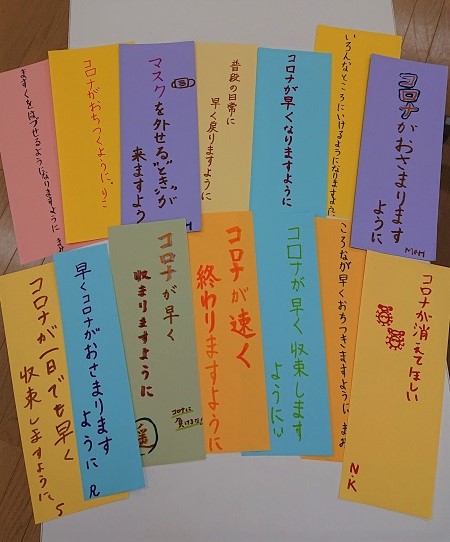 ますくをはづせるようになりますように
コロナがおちつくように。りこ
マスクを外せる"とき"が
来ますよう
普段の日常に
早く戻りますように
コロナが早くなりますように
いろんなところにいけるようになりますよ
コロナがおさまります
ように
コロナが一日でも早く
収束しますように
S
早くコロナがおさまります
ように
R
コロナが早く
収まりますように
コロナに
負けるな!
コロナが速く
終わりますように
コロナが早く収束します
ように
ころなが早くおちつきますように まお
コロナが消えてほしい
N.K